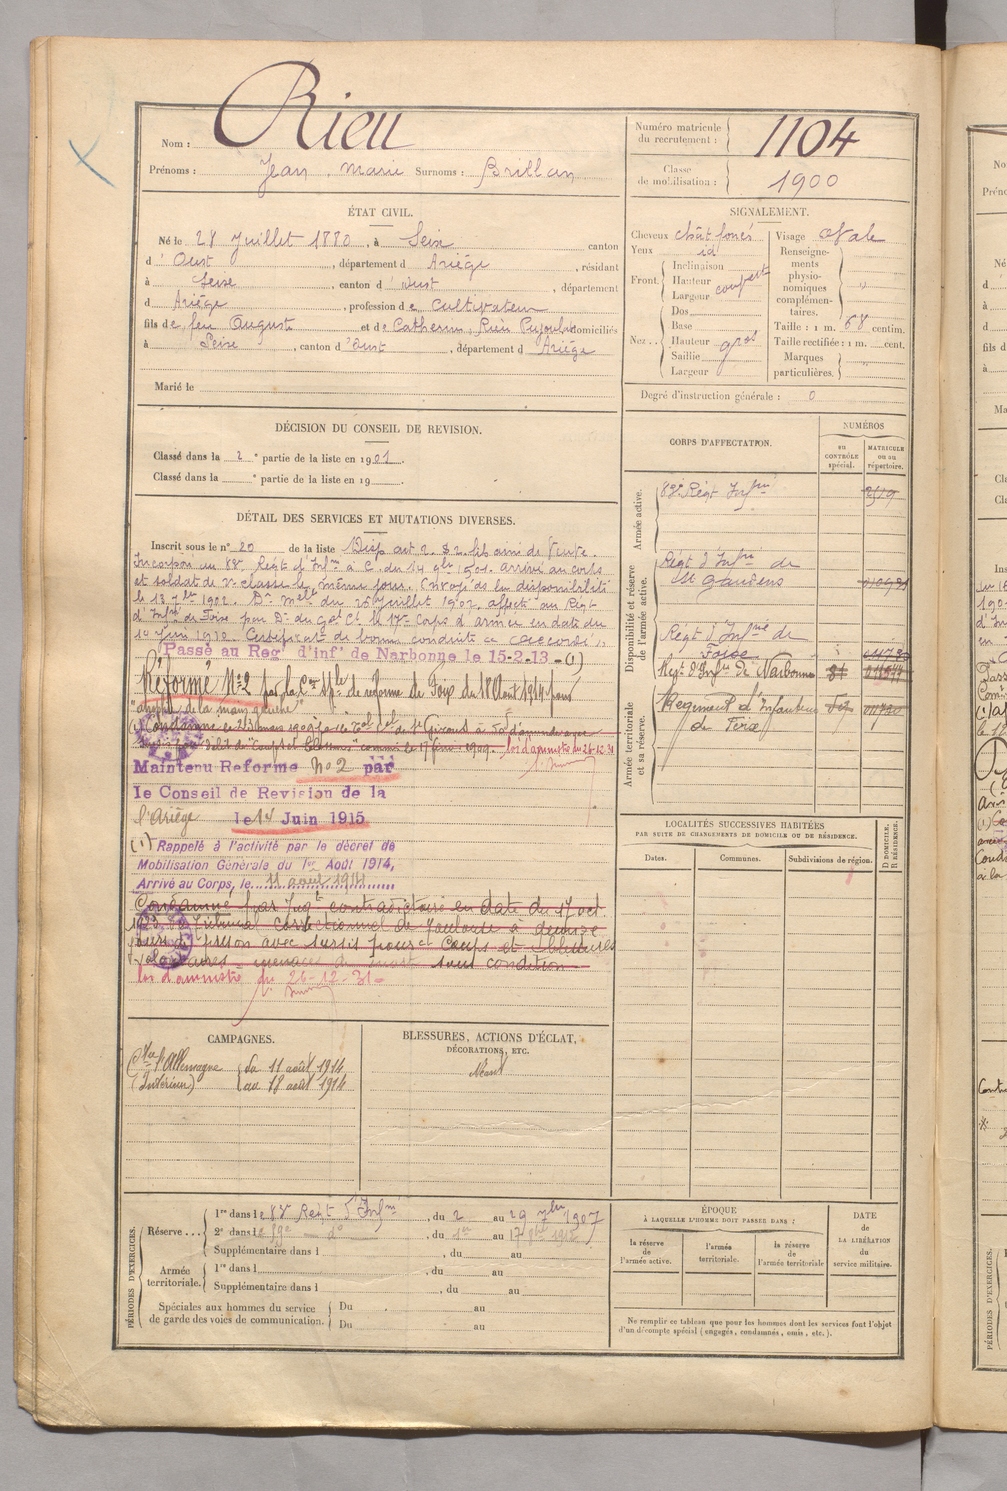 Nom : Rieu
Prénoms : Jean Marie Surnoms : Brillan
Numéro matricule du recrutement : 1104
Classe de mobilisation : 1900
ÉTAT CIVIL.
Né le 28 Juillet 1880, à Seix canton
d'Oust, département d Ariége, résidant
à Seix, canton d'Oust, département
d Ariége, profession de Cultivateur
fils de feu Auguste et de Catherine Rieu Pujol domiciliés
à Seix, canton d'Oust, département d Ariége
Marié le
SIGNALEMENT.
Cheveux chât foncés
Yeux id
Front. Inclinaison
Hauteur
Largeur
Nez.. Dos
Base
Hauteur gros
Saillie
Largeur
Visage Ovale
Renseignements physionomiques complémentaires. "
Taille : 1 m. 68 centim.
Taille rectifiée : 1 m. cent.
Marques particulières. "
Degré d'instruction générale : 0
DÉCISION DU CONSEIL DE REVISION.
Classé dans la 2e partie de la liste en 1901.
Classé dans la e partie de la liste en 19
CORPS D'AFFECTATION.
NUMÉROS
au CONTRÔLE spécial.
MATRICULE ou au répertoire.
Armée active.
88e Régt Infrie
Disponibilité et réserve de l'armée active.
Régt d'Infrie de St Gaudens
Régt d'Infrie de Foix
Régt d'Infie de Narbonne
Armée territoriale et sa réserve.
Régiment d'Infanterie de Foix
DÉTAIL DES SERVICES ET MUTATIONS DIVERSES.
Inscrit sous le n° 20 de la liste Disp art 2
Incorporé au 88e Régt d'Infie à C. du 14 9bre 1901. arrivé au corps
et soldat de 2e classe le même jour. Envoyé ds la disponibilité
le 18 7bre 1902. Dn melle du 26 Juillet 1902. affecté au Régt
d'Infie de Foix par Dn du Gal Ct le 17e Corps d'armée en date du
14 Juin 1912. Certificat de bonne conduite accordé
Passé au Reg' d'inf' de Narbonne le 15-2-13 - (1)
Réformé No 2 par la Con Sple de réforme de Foix du 18 Août 1914 pour
"atrophie de la main gauche"
Condamné le 23 mars 1909 par le Tal de St Girons à 50f d'amende
délit de "Coups et blessures" commis le 17 févr. 1909. loi d'amnistie du 26-12-31
Maintenu Reforme No 2 par
le Conseil de Revision de la
l'Ariège le 14 Juin 1915
(1) Rappelé à l'activité par le décret de
Mobilisation Générale du 1er Août 1914,
Arrivé au Corps, le 11 août 1914
Condamné par Jugt contradictoire en date du 17 oct
Tribunal Correctionnel de Toulouse à
jours de prison avec sursis pour Coups et blessures
volontaires menaces de mort sous condition
loi d'amnistie du 26-12-31
LOCALITÉS SUCCESSIVES HABITÉES
PAR SUITE DE CHANGEMENTS DE DOMICILE OU DE RÉSIDENCE.
Dates.
Communes.
Subdivisions de région.
D DOMICILE. R RÉSIDENCE.
CAMPAGNES.
Ctre l'Allemagne du 11 août 1914
(Intérieur) au 18 août 1914
BLESSURES, ACTIONS D'ÉCLAT,
DÉCORATIONS, ETC.
Néant
PÉRIODES D'EXERCICES.
Réserve... 1re dans le 88e Regt d'Infie, du 2 au 29 7bre 1907
2e dans le 59e — do, du 1er au 17
Supplémentaire dans l, du au
Armée territoriale. 1re dans l, du au
Supplémentaire dans l, du au
Spéciales aux hommes du service de garde des voies de communication. Du au
Du au
ÉPOQUE
À LAQUELLE L'HOMME DOIT PASSER DANS :
la réserve de l'armée active.
l'armée territoriale.
la réserve de l'armée territoriale
DATE de LA LIBÉRATION du service militaire.
Ne remplir ce tableau que pour les hommes dont les services font l'objet
d'un décompte spécial (engagés, condamnés, omis, etc.).